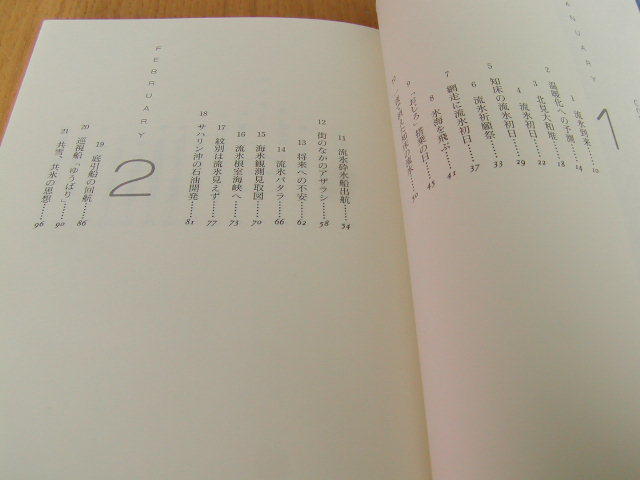 ANUARY
1
1 流氷到来……10
2 温暖化への予測……14
3 北見大和堆……18
4 流氷初日……22
5 知床の流氷初日……29
6 流氷祈願祭……33
7 網走に流氷初日……37
8 氷海を飛ぶ……43
9 搭乗の日……45
50
11 流氷砕氷船出航……54
12 街のなかのアザラシ……58
13 将来への不安……62
14 流氷バタラ……66
15 海氷観測見取図……70
16 流氷根室海峡へ……73
17 紋別は流氷見えず……77
18 サハリン沖の石油開発……81
FEBRUARY
2
19 底引船の回航……86
20 巡視船「ゆうばり」……90
21 共雪、共氷の思想……96